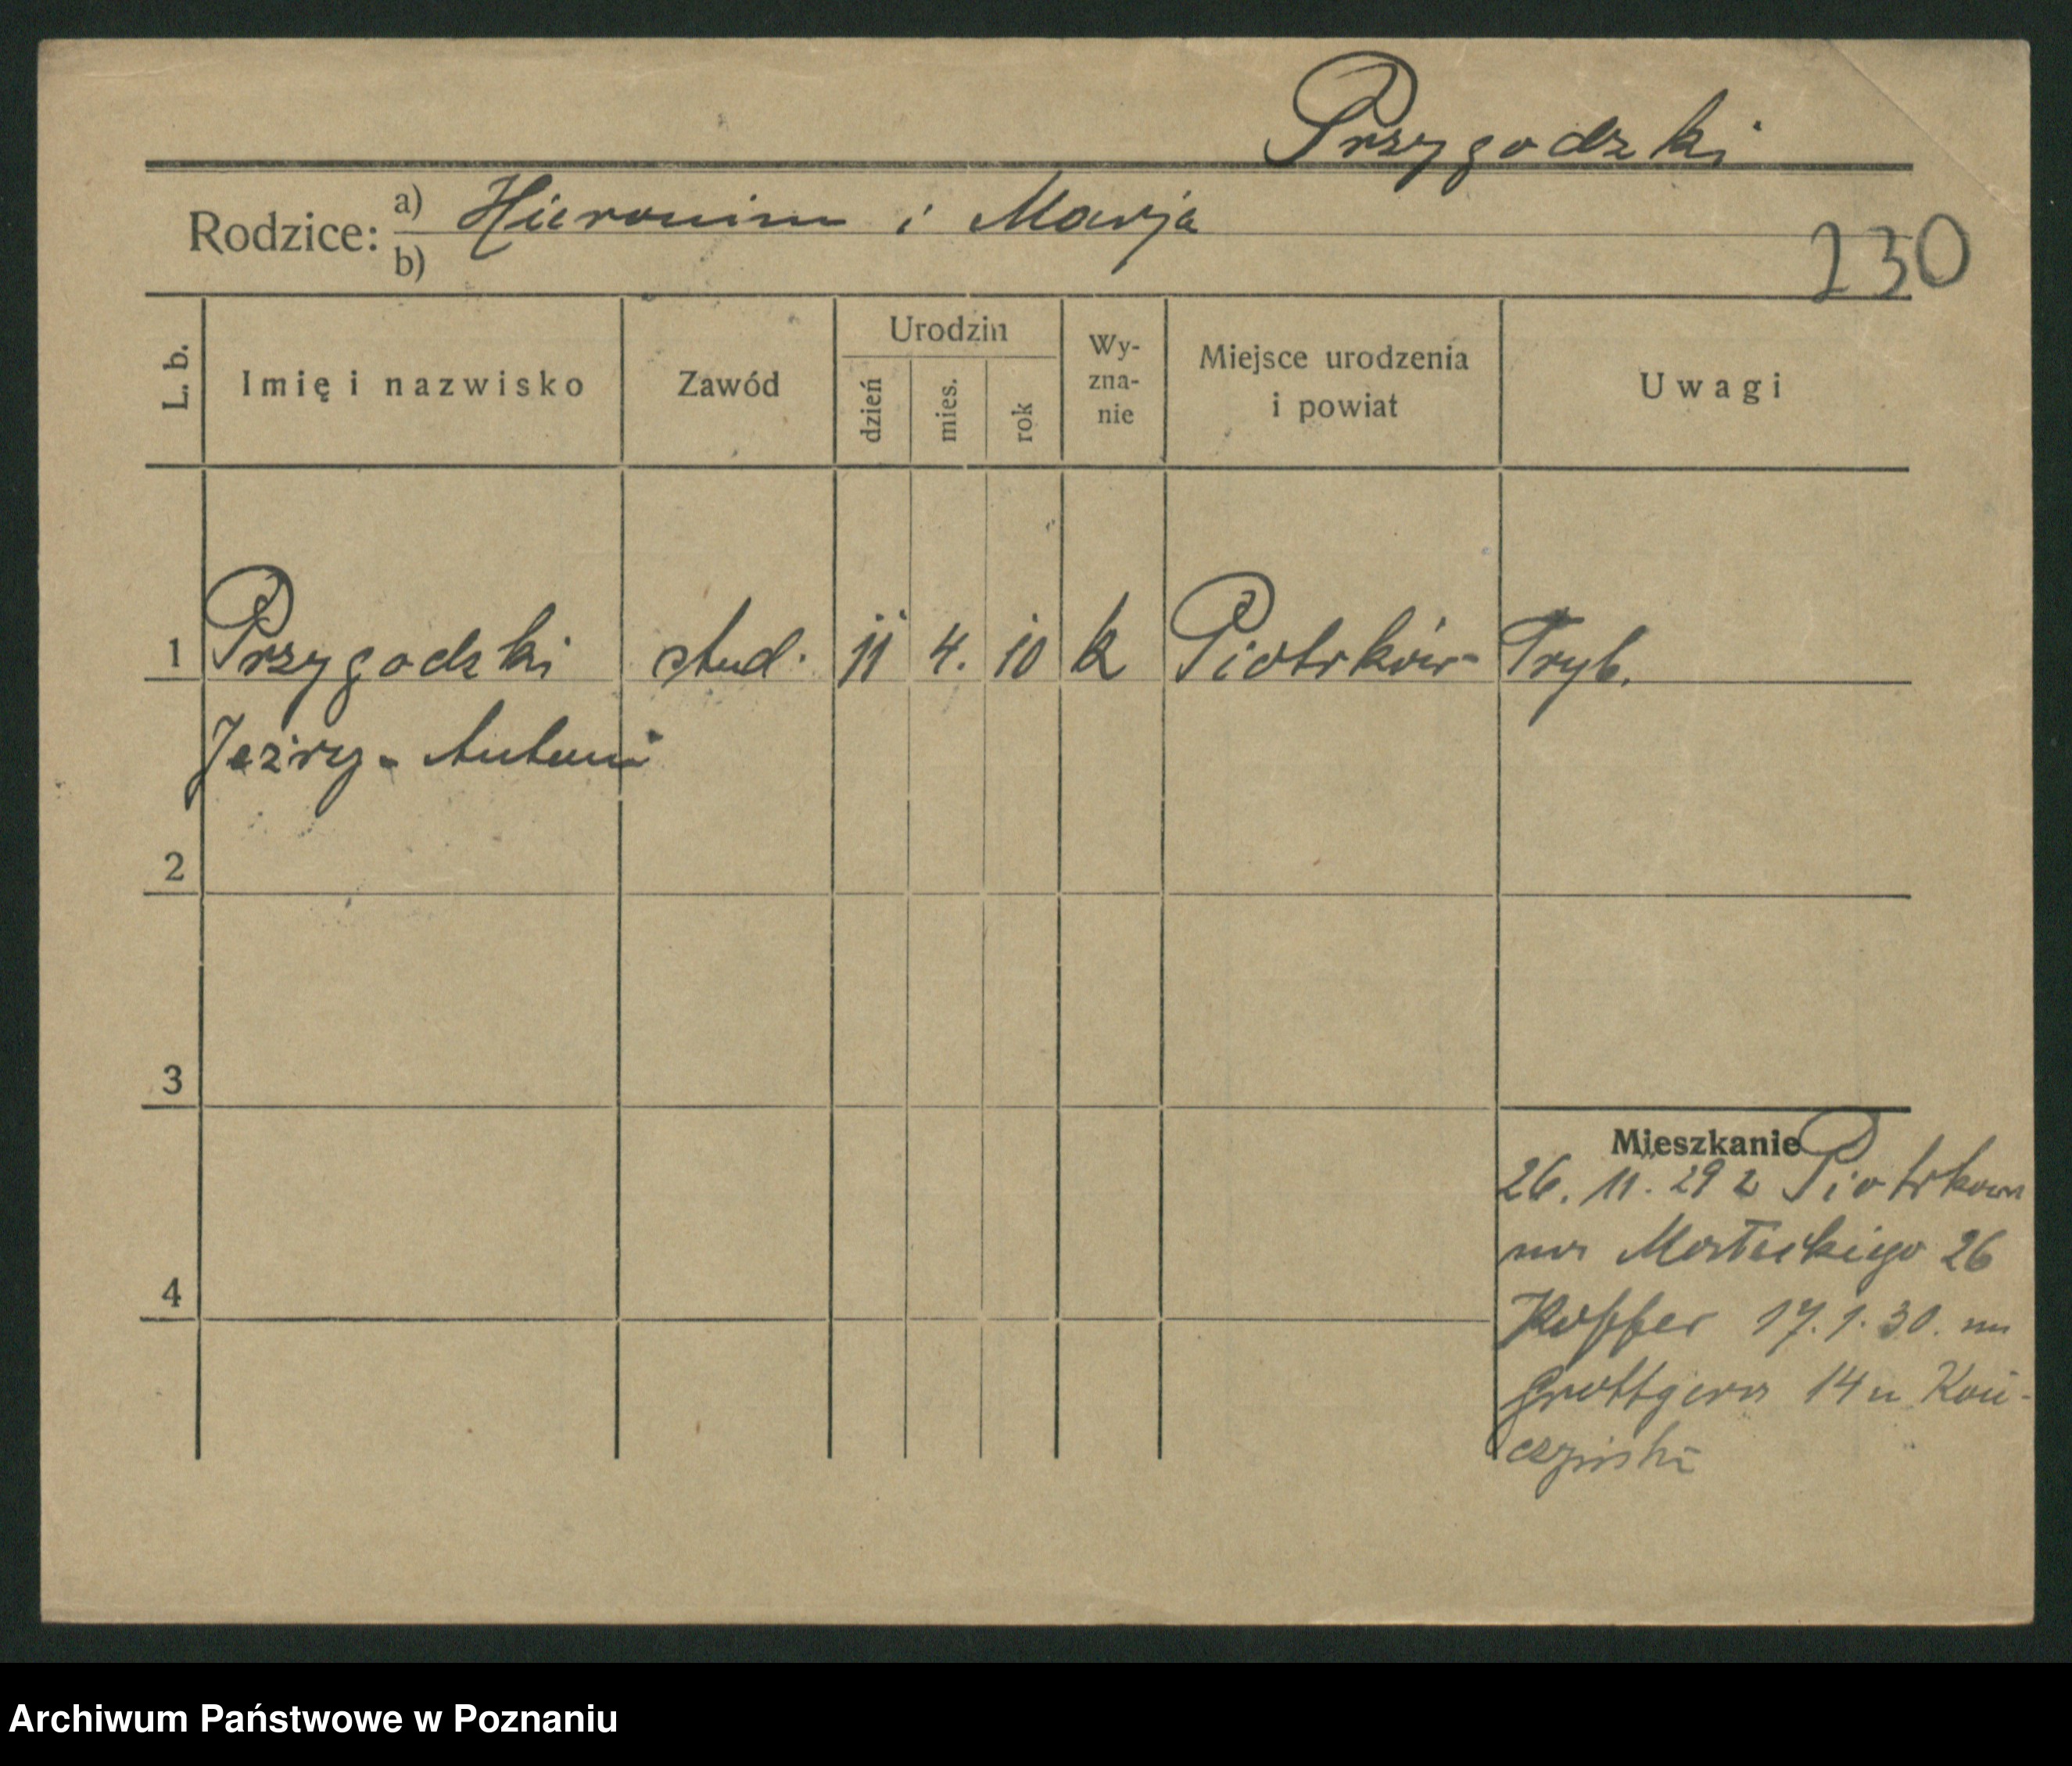 Przygodzki
Rodzice: a) Hieronim i Marja
b)
230
L. b. Imię i nazwisko Zawód Urodzin dzień mies. rok Wy-zna-nie Miejsce urodzenia i powiat Uwagi
1 Przygodzki stud. 11 4. 10 k Piotrków- Tryb.
Jeżry - Antoni
2
3
Mieszkanie
26. 11. 29 z Piotrkowa
na Małeckiego 26
17.1.30. na
Grottgera 14 u Koń-
czyński
4
Archiwum Państwowe w Poznaniu